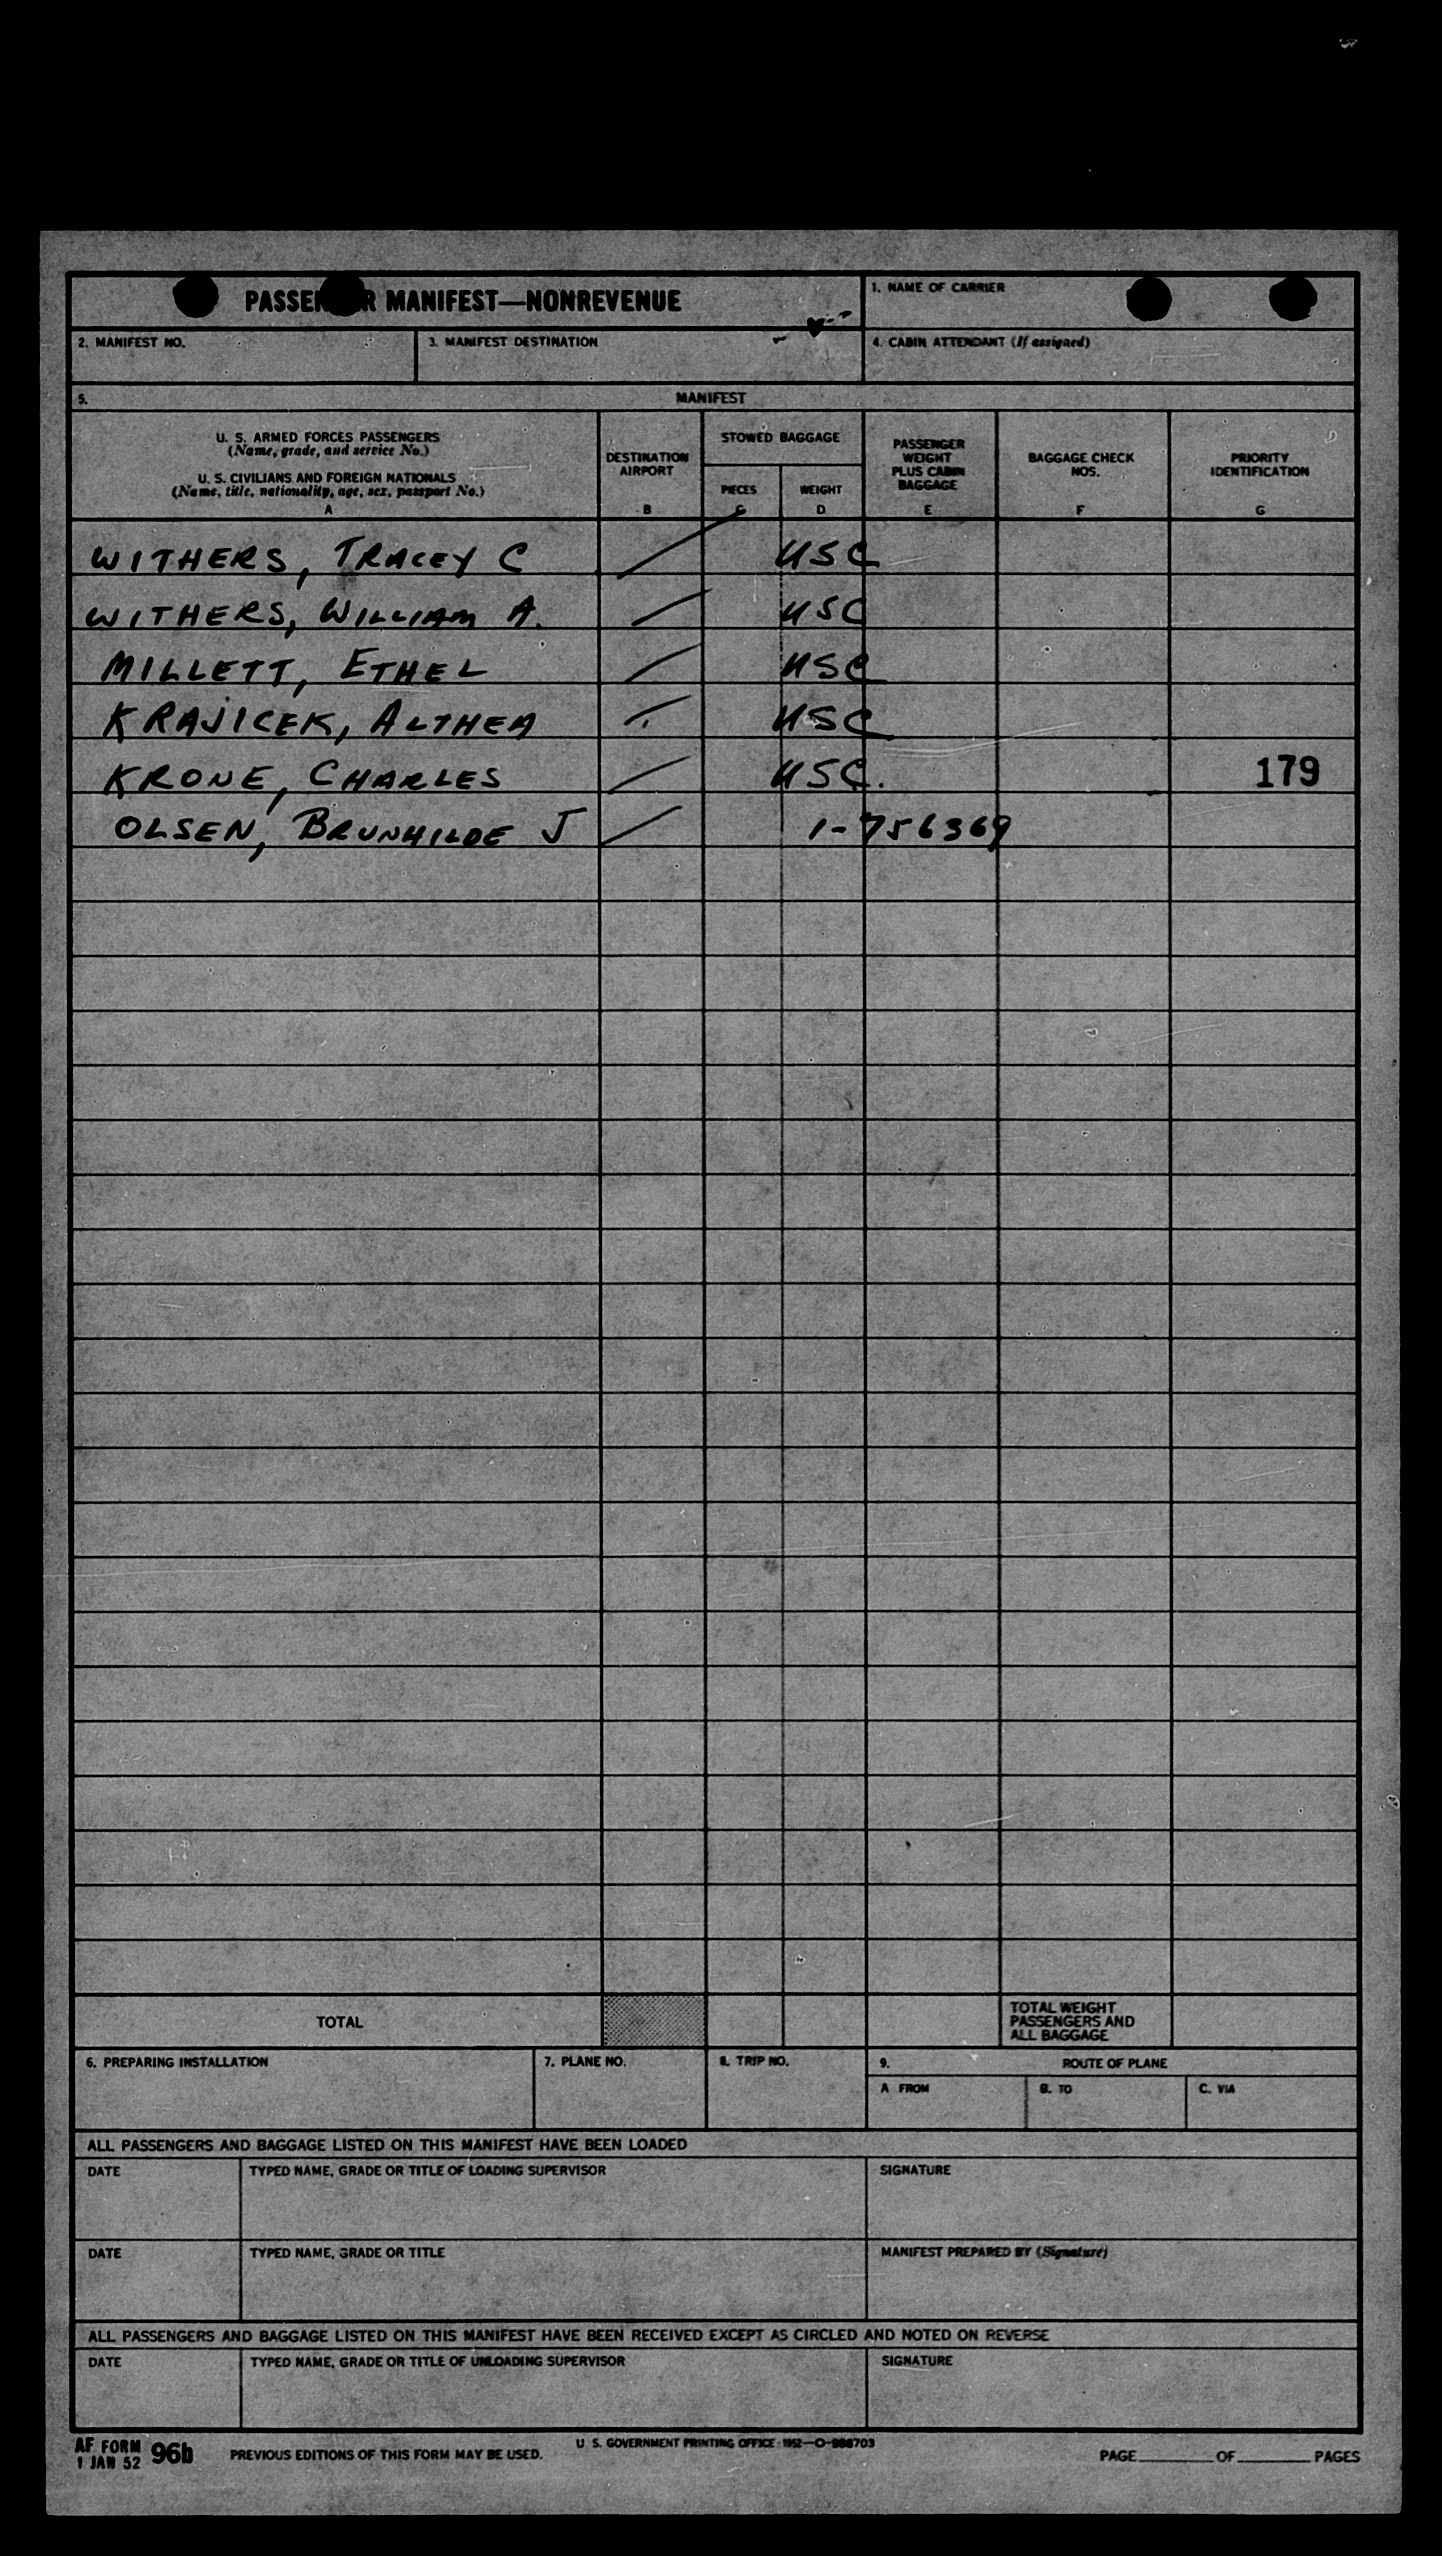 PASSENGER MANIFEST—NONREVENUE
1. NAME OF CARRIER
2. MANIFEST NO.
3. MANIFEST DESTINATION
4. CABIN ATTENDANT (If assigned)
5. MANIFEST
U. S. ARMED FORCES PASSENGERS
(Name, grade, and service No.)
U. S. CIVILIANS AND FOREIGN NATIONALS
(Name, title, nationality, age, sex, passport No.)
A
DESTINATION
AIRPORT
B
STOWED BAGGAGE
PIECES
C
WEIGHT
D
PASSENGER
WEIGHT
PLUS CABIN
BAGGAGE
E
BAGGAGE CHECK
NOS.
F
PRIORITY
IDENTIFICATION
G
WITHERS, TRACEY C USC
WITHERS, WILLIAM A. USC
MILLETT, ETHEL USC
KRAJICEK, ALTHEA USC
KRONE, CHARLES USC. 179
OLSEN, BRUNHILDE J 1-756369
TOTAL
TOTAL WEIGHT
PASSENGERS AND
ALL BAGGAGE
6. PREPARING INSTALLATION
7. PLANE NO.
8. TRIP NO.
9. ROUTE OF PLANE
A FROM
B. TO
C. VIA
ALL PASSENGERS AND BAGGAGE LISTED ON THIS MANIFEST HAVE BEEN LOADED
DATE
TYPED NAME, GRADE OR TITLE OF LOADING SUPERVISOR
SIGNATURE
DATE
TYPED NAME, GRADE OR TITLE
MANIFEST PREPARED BY (Signature)
ALL PASSENGERS AND BAGGAGE LISTED ON THIS MANIFEST HAVE BEEN RECEIVED EXCEPT AS CIRCLED AND NOTED ON REVERSE
DATE
TYPED NAME, GRADE OR TITLE OF UNLOADING SUPERVISOR
SIGNATURE
AF FORM 96b
1 JAN 52
PREVIOUS EDITIONS OF THIS FORM MAY BE USED.
U. S. GOVERNMENT PRINTING OFFICE : 1952—O
PAGE OF PAGES